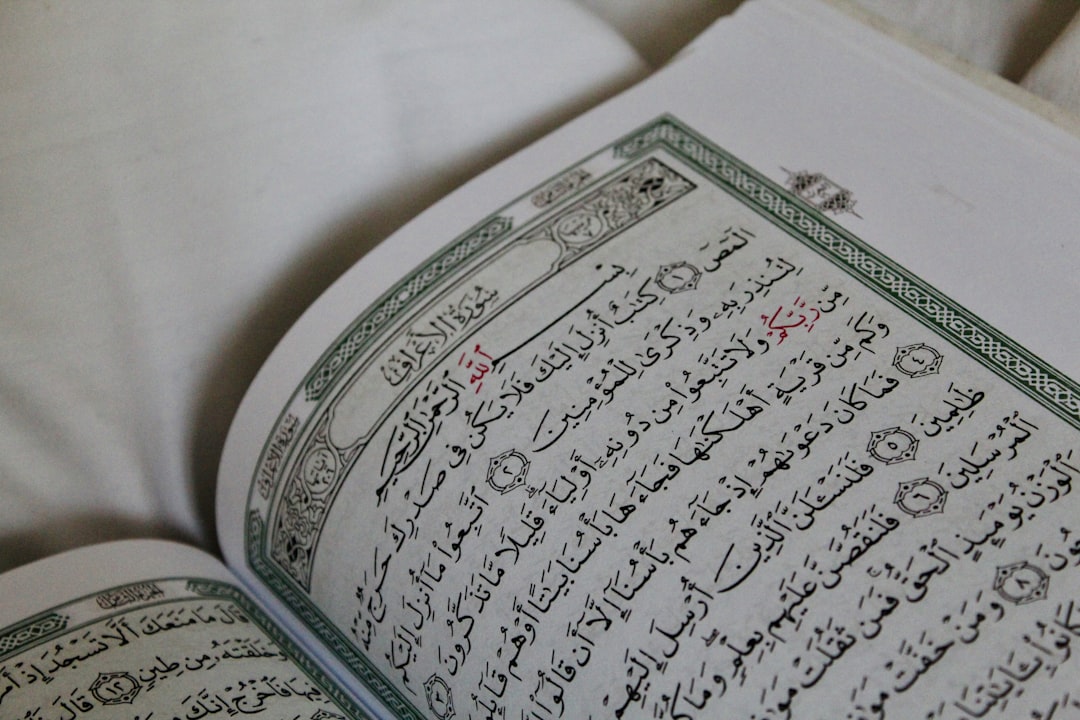 سُورَةُ الأَعْرَافِ
بِسْمِ ٱللَّهِ ٱلرَّحْمَٰنِ ٱلرَّحِيمِ
الٓمٓصٓ ١ كِتَٰبٌ أُنزِلَ إِلَيْكَ فَلَا يَكُن فِى صَدْرِكَ حَرَجٌ مِّنْهُ
لِتُنذِرَ بِهِۦ وَذِكْرَىٰ لِلْمُؤْمِنِينَ ٢ ٱتَّبِعُوا۟ مَآ أُنزِلَ إِلَيْكُم
مِّن رَّبِّكُمْ وَلَا تَتَّبِعُوا۟ مِن دُونِهِۦٓ أَوْلِيَآءَ قَلِيلًا مَّا تَذَكَّرُونَ ٣
وَكَم مِّن قَرْيَةٍ أَهْلَكْنَٰهَا فَجَآءَهَا بَأْسُنَا بَيَٰتًا أَوْ هُمْ قَآئِلُونَ
٤ فَمَا كَانَ دَعْوَىٰهُمْ إِذْ جَآءَهُم بَأْسُنَآ إِلَّآ أَن قَالُوٓا۟
ظَٰلِمِينَ ٥ فَلَنَسْـَٔلَنَّ ٱلَّذِينَ أُرْسِلَ إِلَيْهِمْ
ٱلْمُرْسَلِينَ ٦ فَلَنَقُصَّنَّ عَلَيْهِم بِعِلْمٍ وَمَا
وَٱلْوَزْنُ يَوْمَئِذٍ ٱلْحَقُّ فَمَن ثَقُلَتْ
٨ وَمَنْ خَفَّتْ
كَانُوا۟ بِـَٔايَٰتِنَا
سورة الأعراف
قَالَ مَا مَنَعَكَ أَلَّا تَسْجُدَ إِذْ
خَلَقْتَهُۥ مِن طِينٍ ١٢ قَالَ
فِيهَا فَٱخْرُجْ إِنَّكَ